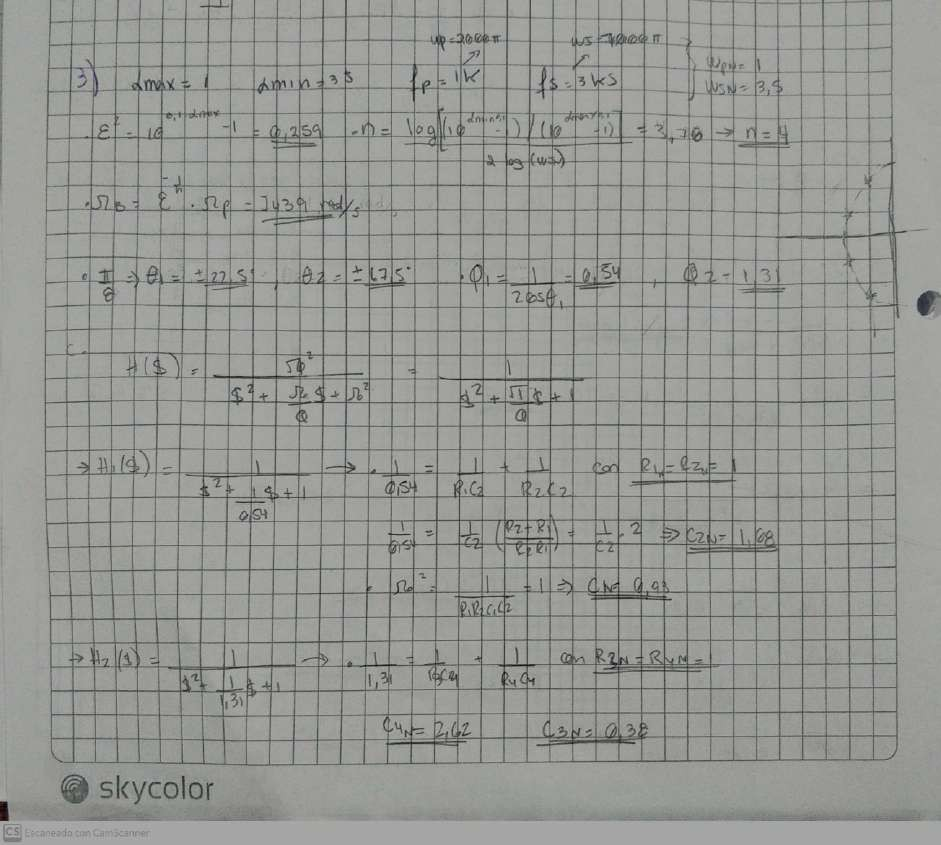 ωp=2000π ωs=7000π
3) αmax = 1 αmin = 35 fp = 1K fs = 3K5 } ωPN = 1
ωSN = 3,5
· ε² = 10^(0,1·αmax) -1 = 0,259 · n = log[(10^(αmin·0,1) -1)/(10^(αmax·0,1) -1)] / 2 log(ωs) = 3,78 → n=4
· ΩB = ε^(-1/n) · Ωp = 7439 rad/s
· π/8 ⇒ θ1 = ±22,5° , θ2 = ±67,5° · Q1 = 1/(2cosθ1) = 0,54 , Q2 = 1,31
H($) = Ω0²/($² + Ω0/Q $ + Ω0²) = 1/($² + √1/Q $ + 1)
→ H1($) = 1/($² + 1/0,54 $ + 1) → · 1/0,54 = 1/R1C2 + 1/R2C2 con R1N = R2N = 1
1/0,54 = 1/C2 (R2+R1/R2R1) = 1/C2 · 2 ⇒ C2N = 1,08
· Ω0² = 1/R1R2C1C2 = 1 ⇒ CN = 0,93
→ H2($) = 1/($² + 1/1,31 $ + 1) → · 1/1,31 = 1/R3C4 + 1/R4C4 con R3N = R4N = 1
C4N = 2,62 C3N = 0,38
skycolor
CS Escaneado con CamScanner